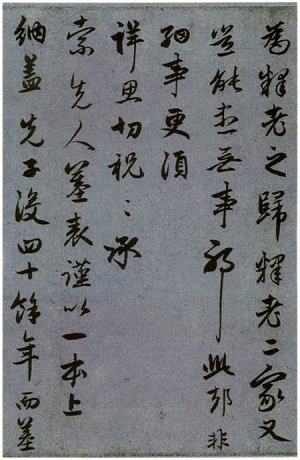 為釋老之歸釋老二家又
能無事邪此却非
細事更須
詳思切祝〻承
索先人墓表謹以一本上
納蓋先子没四十餘年而墓